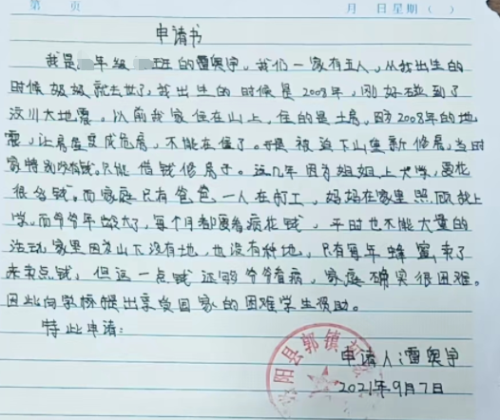 第 页 月 日 星期( )
申请书
我是 年级 班的雷奥宇,我们一家有五人,从我出生的
时候奶奶就去世了,我出生的时候是2008年,刚好碰到了
汶川大地震。以前我家住在山上,住的是土房,因为2008年的地
震,让房屋变成危房,不能在住了。于是被迫下山重新修房,当时
家特别没有钱,只能借钱修房子。这几年因为姐姐上大学,要花
很多钱。而家庭只有爸爸一人在打工,妈妈在家里照顾我上
学。而爷爷年龄大了,每个月都要看病花钱,平时也不能大量的
活动家里因为山下没有地,也没有种地,只有每年蜂蜜卖了
来卖点钱,但这一点钱 够爷爷看病,家庭确实很困难。
因此向学校提出享受国家的困难学生资助。
特此申请:
申请人:雷奥宇
2021年9月7日
阳县郭镇